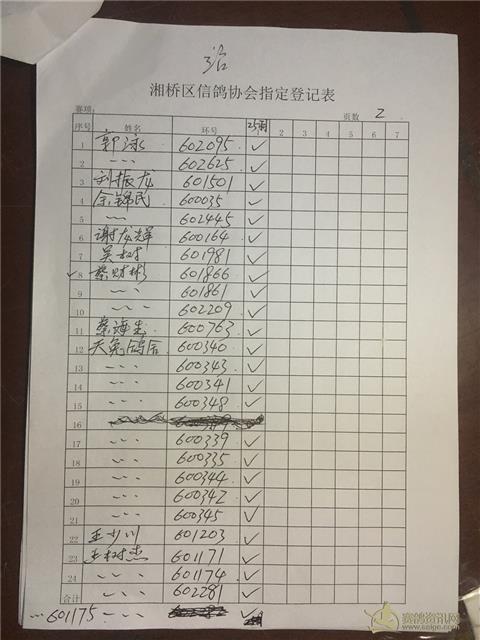 湘桥区信鸽协会指定登记表
赛项: 页数 2
序号 姓名 环号 25羽 2 3 4 5 6 7
1 郭泳 602095 ✓
2 〃 602625 ✓
3 刘振龙 601501 ✓
4 余锦民 600035 ✓
5 〃 602445 ✓
6 谢龙辉 600164 ✓
7 吴树 601981 ✓
✓ 8 蔡财彬 601866 ✓
9 〃 601861 ✓
10 〃 602209 ✓
11 蔡海 600763 ✓
12 天兔鸽舍 600340 ✓
13 〃 600343 ✓
14 〃 600341 ✓
15 〃 600348 ✓
16
17 〃 600339 ✓
18 〃 600335 ✓
19 〃 600344 ✓
20 〃 600342 ✓
21 〃 600345 ✓
22 王少川 601203 ✓
23 王树杰 601171 ✓
24 〃 601174 ✓
合计 〃 602281 ✓
601175 〃
赛鸽资讯网
www.saige.com